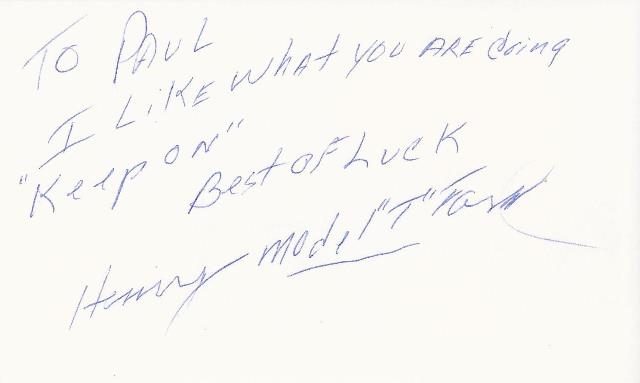 TO PAUL
I LiKE WhAt YOU ARE doing
"Keep ON"
Best OF LucK
Henry Model "T" Ford